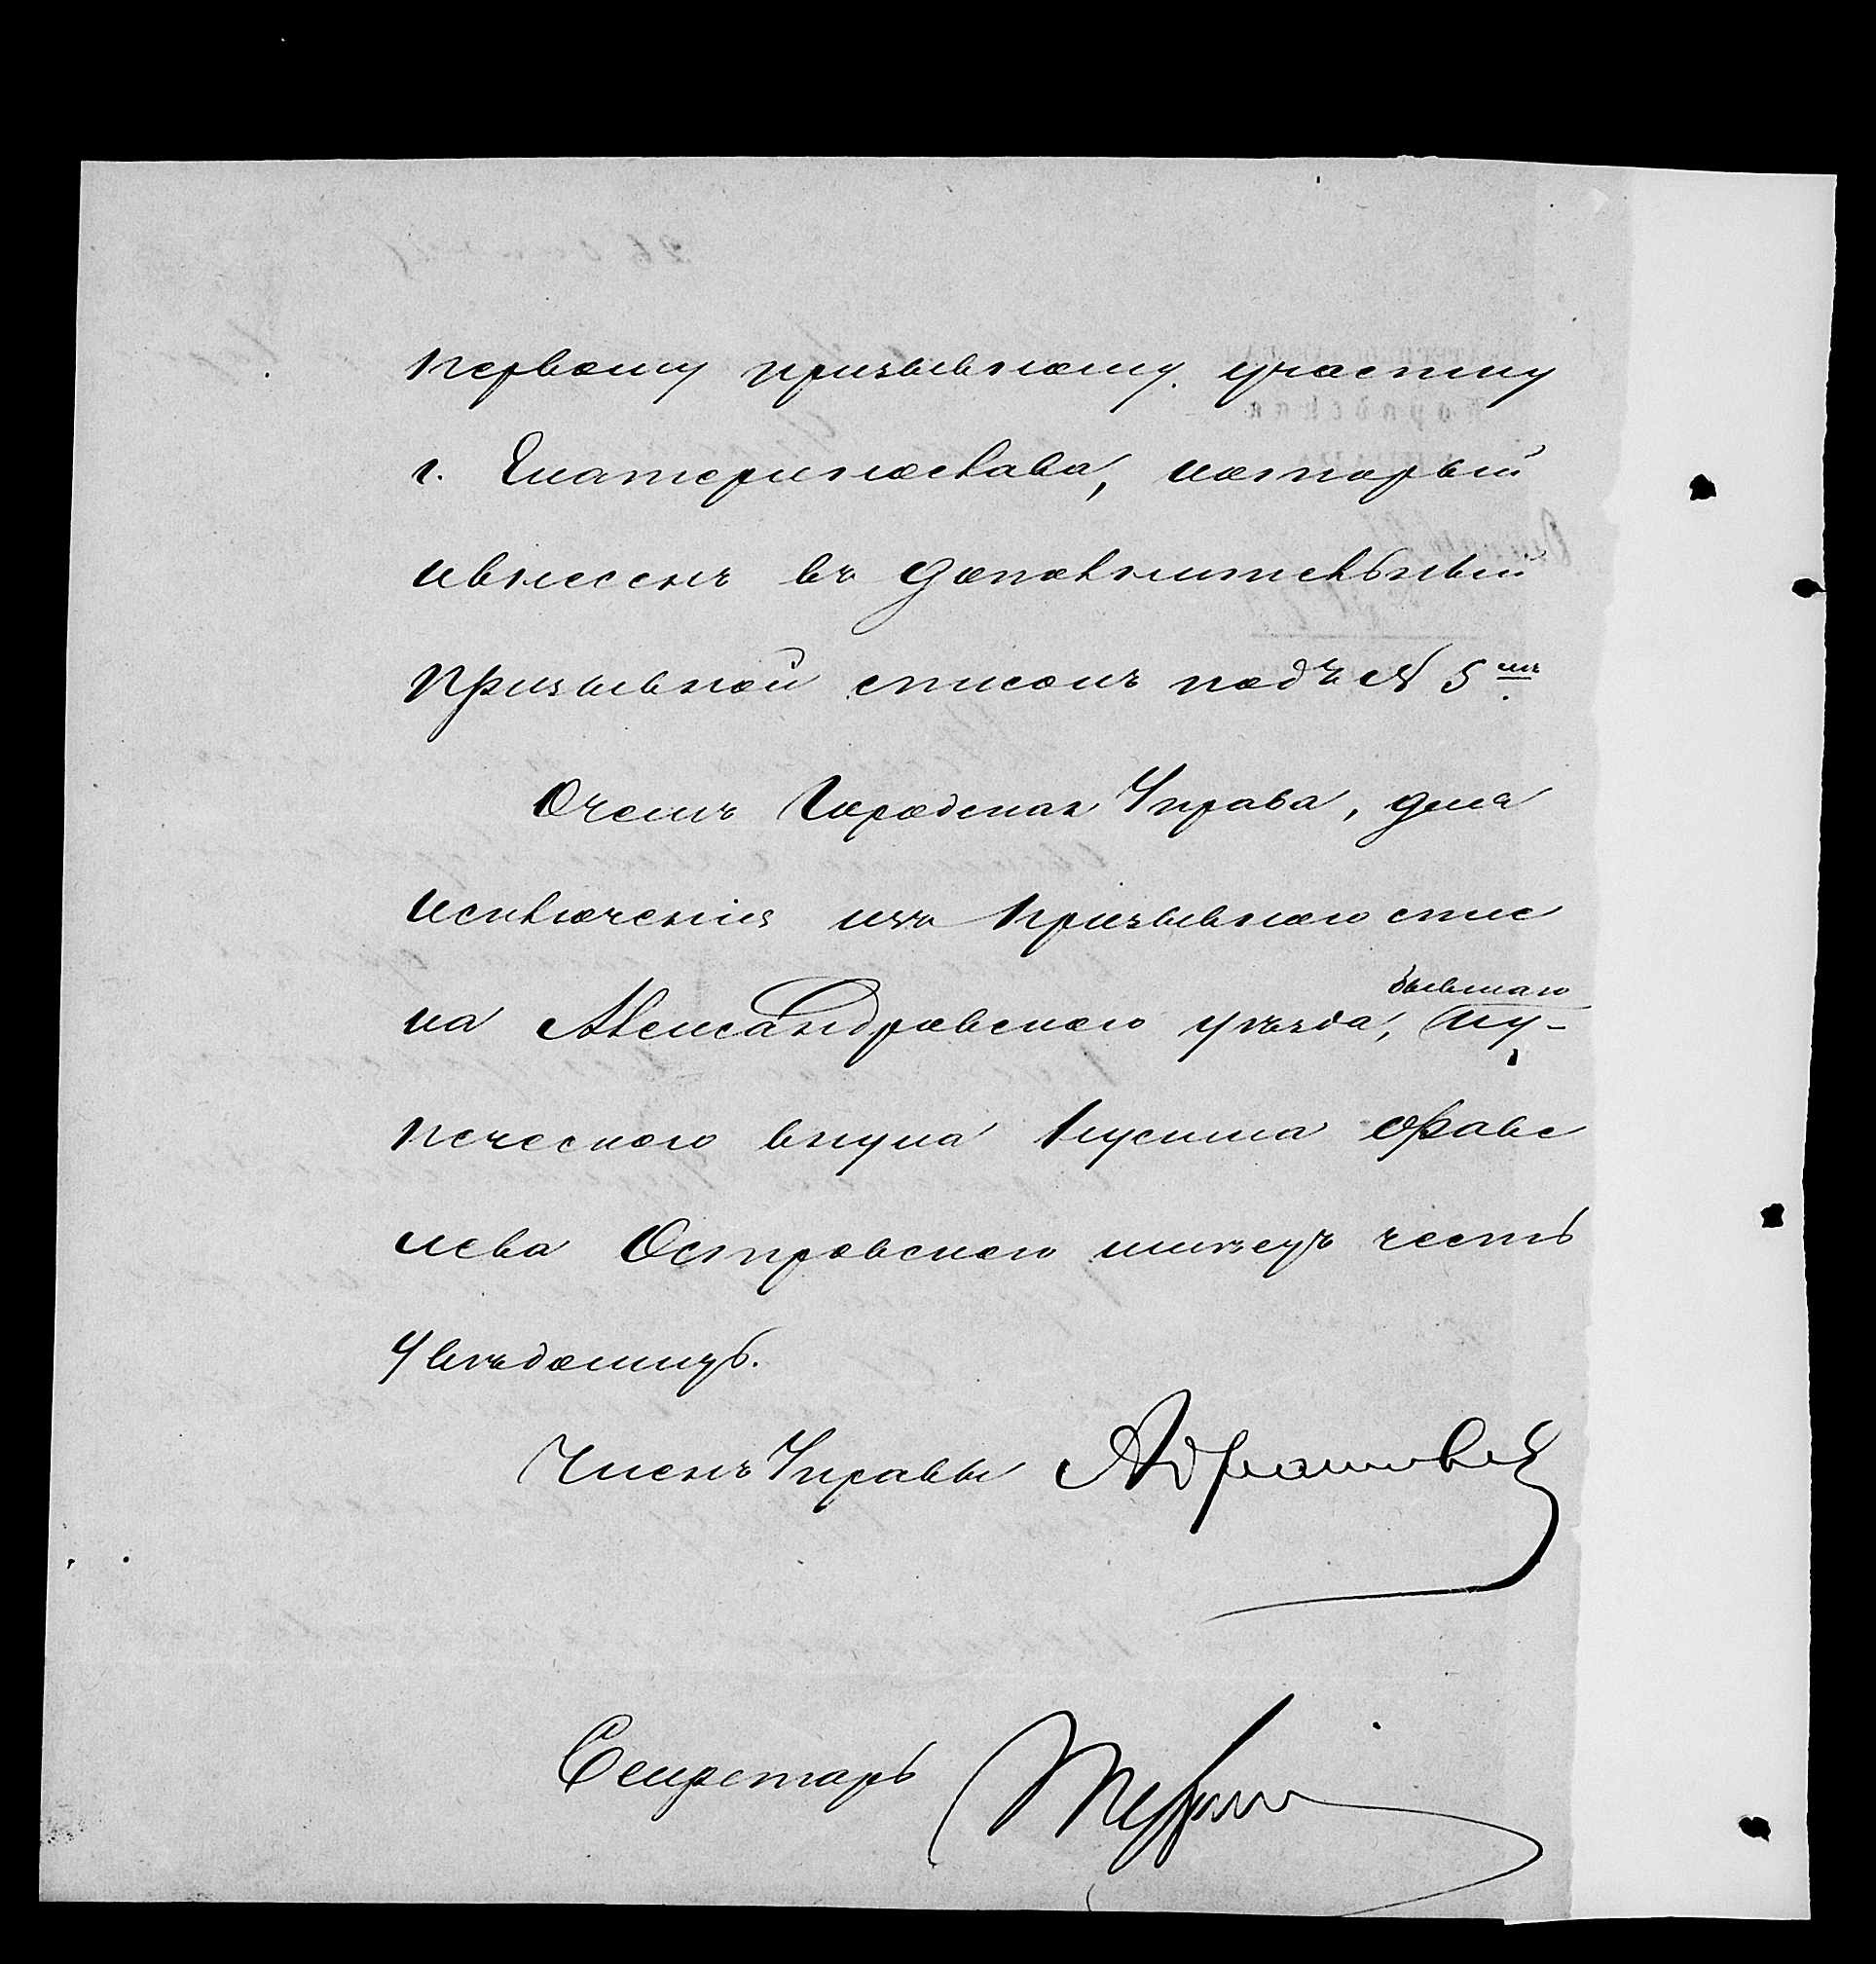 первому призывному участку
г. Екатеринослава, который
ивнесенъ въ дополнительный
призывной списокъ подъ № 5мъ.
Очемъ Городская Управа, для
исключенія изъ призывного спис
ка Александровского уѣзда, бывшаго ку-
печеского внука Кусима Фаве
лева Островского имѣетъ честь
увѣдомить.
Членъ Управы
Секретарь